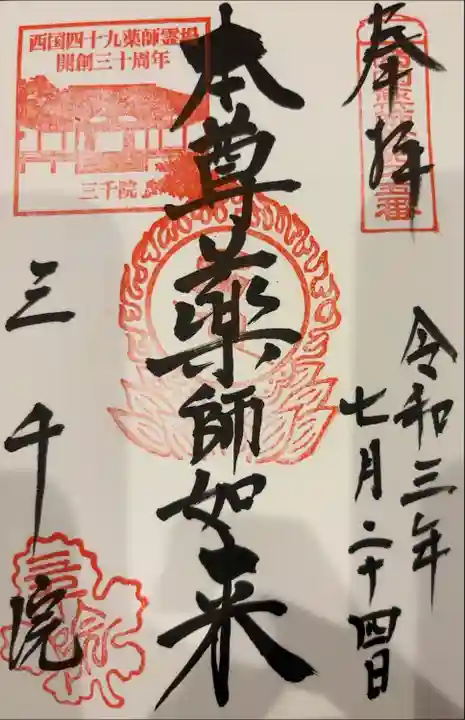 奉拝
令和三年
七月二十四日
本尊薬師如来
西国四十九薬師霊場
開創三十周年
三千院
三千院